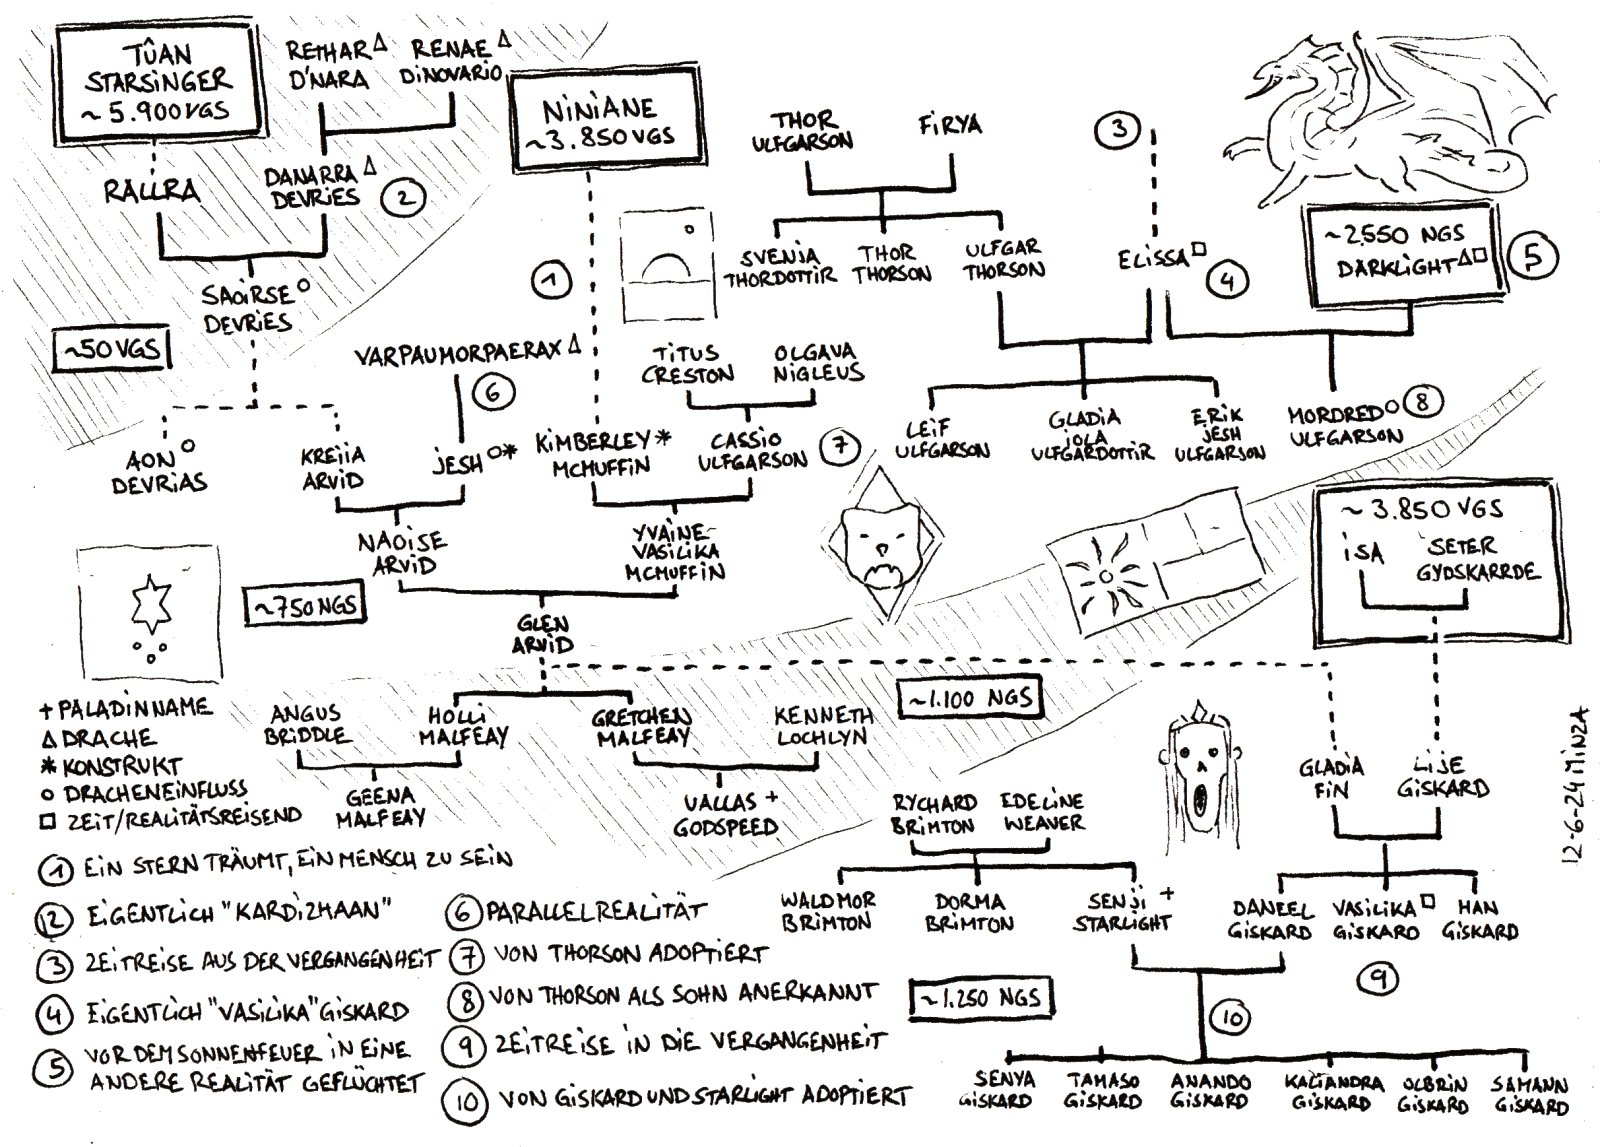 TÛAN
STARSINGER
~5.900VGS
RETHAR△
D'NARA
RENAE△
DINOVARIO
NINIANE
~3.850VGS
THOR
ULFGARSON
FIRYA
3
RALLRA
DANARRA△
DEVRIES
2
SVENJA
THORDOTTIR
THOR
THORSON
ULFGAR
THORSON
ELISSA□
4
~2550 NGS
DARKLIGHT△□
5
1
SAOIRSE○
DEVRIES
~50VGS
VARPAUMORPAERAX△
6
TITUS
CRESTON
OLGAVA
NIGLEUS
AON○
DEVRIAS
KREJIA
ARVID
JESH○*
KIMBERLEY*
MCMUFFIN
CASSIO
ULFGARSON
7
LEIF
ULFGARSON
GLADIA
IOLA
ULFGARDOTTIR
ERIK
JESH
ULFGARSON
MORDRED○
ULFGARSON
8
NAOISE
ARVID
YVAINE-
VASILIKA
MCMUFFIN
~3.850VGS
ISA
SETER
GYDSKARRDE
~750NGS
GLEN
ARVID
~1.100 NGS
ANGUS
BRIDDLE
HOLLI
MALFEAY
GRETCHEN
MALFEAY
KENNETH
LOCHLYN
GEENA
MALFEAY
VALLAS+
GODSPEED
GLADIA
FIN
LIJE
GISKARD
RYCHARD
BRIMTON
EDELINE
WEAVER
WALDMOR
BRIMTON
DORMA
BRIMTON
SENJI+
STARLIGHT
DANEEL
GISKARD
VASILIKA□
GISKARD
HAN
GISKARD
9
~1.250 NGS
10
SENYA
GISKARD
TAMASO
GISKARD
ANANDO
GISKARD
KALIANDRA
GISKARD
OLBRIN
GISKARD
SAMANN
GISKARD
+PALADINNAME
△DRACHE
*KONSTRUKT
○DRACHENEINFLUSS
□ZEIT/REALITÄTSREISEND
1 EIN STERN TRÄUMT, EIN MENSCH ZU SEIN
12 EIGENTLICH "KARDIZHAAN"
3 ZEITREISE AUS DER VERGANGENHEIT
4 EIGENTLICH "VASILIKA" GISKARD
5 VOR DEM SONNENFEUER IN EINE
ANDERE REALITÄT GEFLÜCHTET
6 PARALLELREALITÄT
7 VON THORSON ADOPTIERT
8 VON THORSON ALS SOHN ANERKANNT
9 ZEITREISE IN DIE VERGANGENHEIT
10 VON GISKARD UND STARLIGHT ADOPTIERT
12-6-24 MINZA